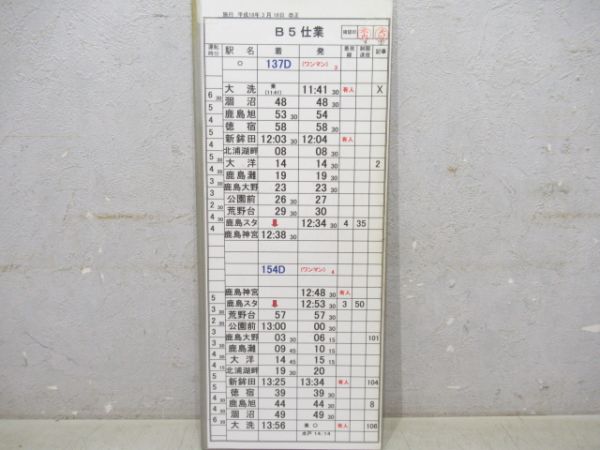 施行 平成18年 3月 18日 改正
B5仕業
運転時分 駅名 着 発 着発線 制限速度 記事
○ 137D (ワンマン) 2
大洗 (11:41) 11:41 30 有人 X
6 涸沼 48 48 30
鹿島旭 53 30 54
徳宿 58 58 30
新鉾田 12:03 30 12:04 有人
北浦湖畔 08 08 30
大洋 14 14 30 2
鹿島灘 19 19 30
鹿島大野 23 23 30
公園前 26 30 27
荒野台 29 30 30
鹿島スタ ⬇ 12:34 30 4 35
鹿島神宮 12:38 30
154D (ワンマン) 4
鹿島神宮 12:48 30 有人
鹿島スタ ⬇ 12:53 30 3 50
荒野台 57 57 30
公園前 13:00 00 30
鹿島大野 03 30 06 15 101
鹿島灘 09 45 10 15
大洋 14 45 15 15
北浦湖畔 19 30 20
新鉾田 13:25 13:34 有人 104
徳宿 39 39 30
鹿島旭 44 44 30 8
涸沼 49 49 30
大洗 13:56 有人 106
水戸 14:14